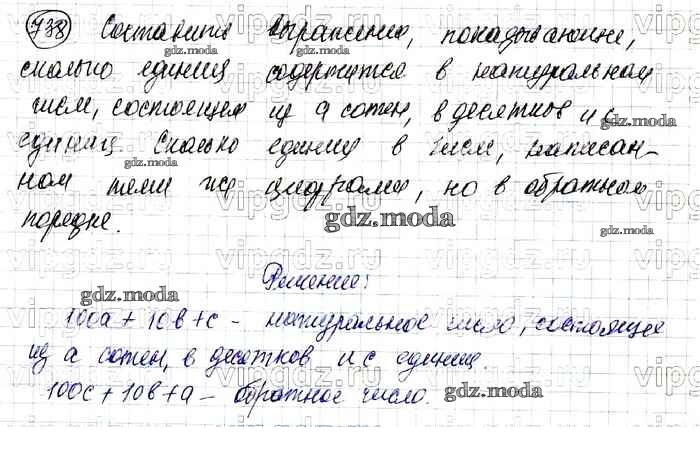 738 Составить выражение, показывающее,
сколько единиц содержится в натуральном
числе, состоящем из a сотен, b десятков и c
единиц. Сколько единиц в числе, написан-
ном теми же цифрами, но в обратном
порядке.
Решение:
100a + 10b + c - натуральное число, состоящее
из a сотен, b десятков и c единиц.
100c + 10b + a - обратное число.
gdz.moda
vipgdz.ru